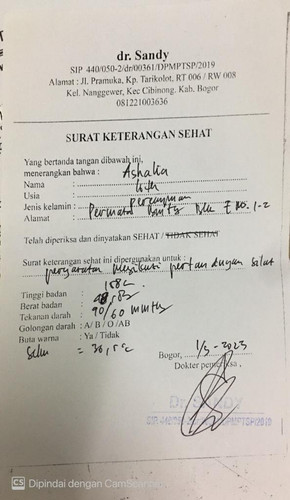 dr. Sandy
SIP 440/050-2/dr/00361/DPMPTSP/2019
Alamat : Jl. Pramuka, Kp. Tarikolot, RT 006 / RW 008
Kel. Nanggewer, Kec Cibinong. Kab. Bogor
081221003636
SURAT KETERANGAN SEHAT
Yang bertanda tangan dibawah ini,
menerangkan bahwa : Ashalia
Nama :
Usia :
Jenis kelamin : perempuan
Alamat : Permata Blk E no. 1-2
Telah diperiksa dan dinyatakan SEHAT / TIDAK SEHAT
Surat keterangan sehat ini dipergunakan untuk :
persyaratan mengikuti pertandingan silat
Tinggi badan : 158 c
Berat badan :
Tekanan darah : 90/60 mmHg
Golongan darah : A/ B / O /AB
Buta warna : Ya / Tidak
Suhu = 36,5°c
Bogor, 1/3-2023
Dokter pemeriksa,
Dr. SANDY
CS Dipindai dengan CamScanner